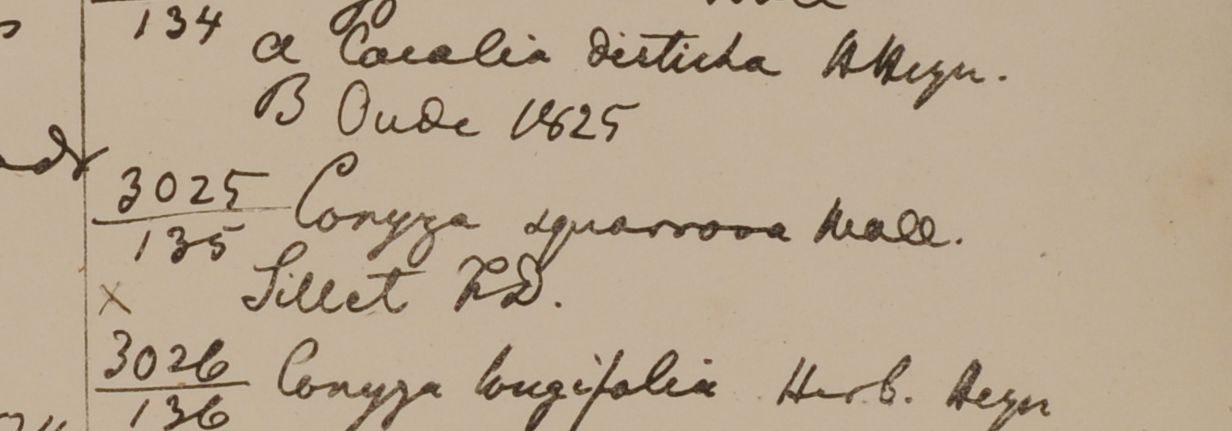 134
a Cacalia disticha HHeyn.
B Oude 1825
3025 Conyza squarrosa Wall.
135
× Sillet F.D.
3026 Conyza longifolia Herb. Heyn
136